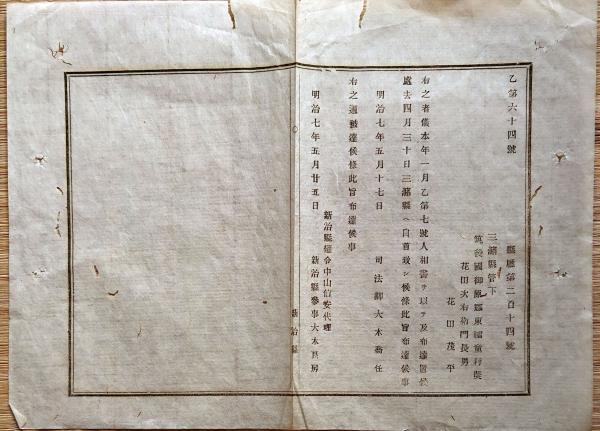 乙第六十四號
縣廳第二百十四號
三潴縣管下
筑後國御原郡東福童村農
花田次右衛門長男
花田茂平
右之者儀本年一月乙第七號人相書ヲ以テ及布達置候
處去四月三十日三潴縣ヘ自首致シ候條此旨布達候事
明治七年五月十七日 司法卿大木喬任
右之通被達候條此旨布達候事
新治縣權令中山信安代理
明治七年五月廿五日 新治縣參事大木真房
新治縣